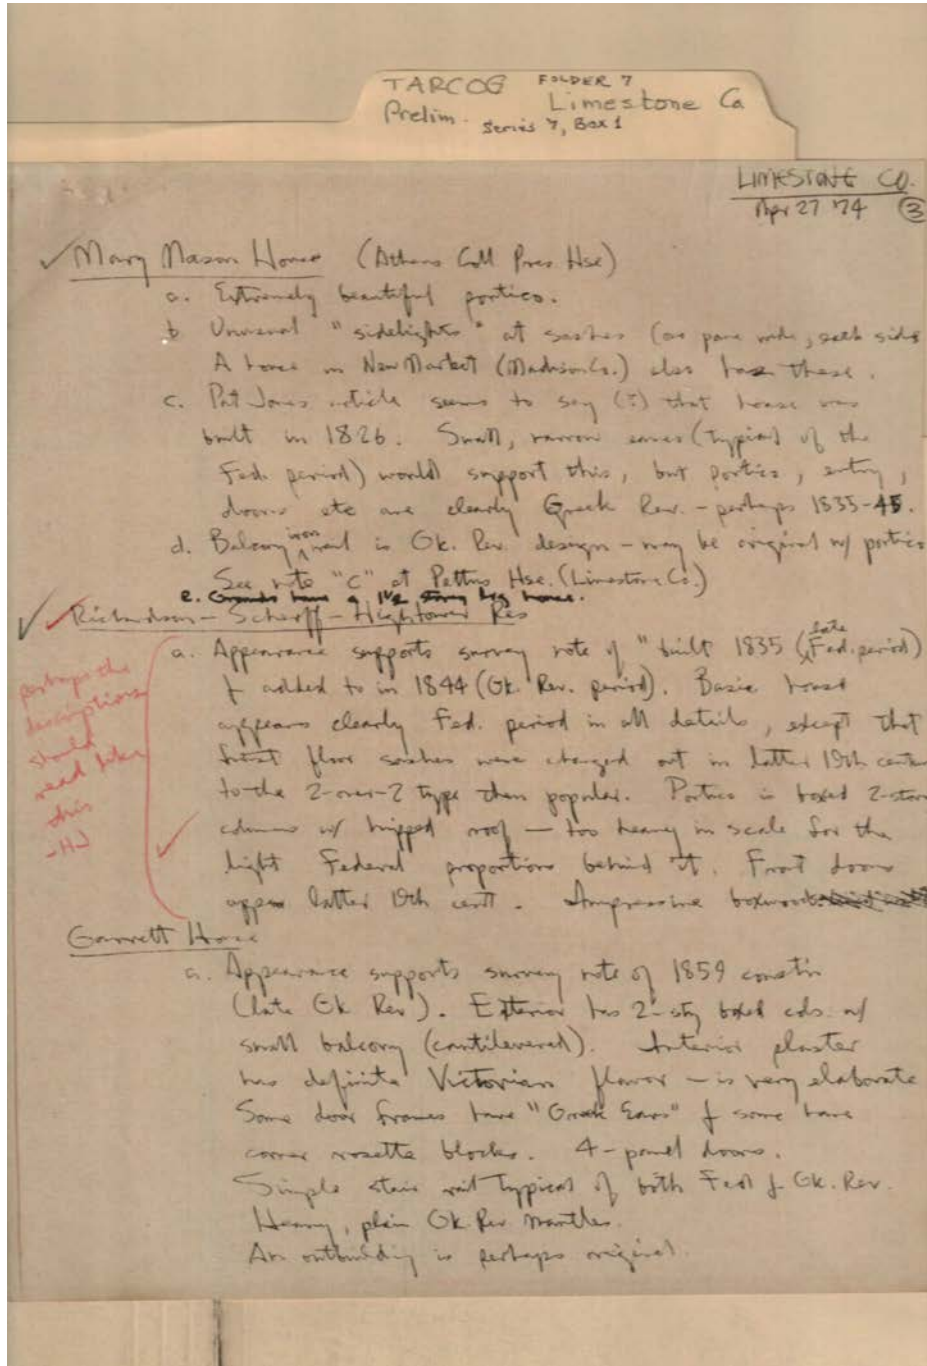 TARCOG FOLDER 7
Prelim. Limestone Co
Series 7, Box 1
LIMESTONE CO.
Apr 27 '74 ③
Mary Mason House (Athens Coll Pres. Hse)
a. Extremely beautiful portico.
b Unusual "sidelights" at sashes (one pane wide, each side
A house in New Market (Madison Co.) also has these.
c. Pat Jones article seems to say (?) that house was
built in 1826. Small, narrow eaves (typical of the
Fed. period) would support this, but portico, entry,
doors etc are clearly Greek Rev. - perhaps 1835-45.
d. Balcony iron rail is Gk. Rev. design - may be original w/ portico
See note "C" at Pettus Hse. (Limestone Co.)
e. Grounds have a 1 1/2 story log house.
Richardson - Scharff - Hightower Res
a. Appearance supports survey note of "built 1835 (late Fed. period)
& added to in 1844 (Gk. Rev. period). Basic house
appears clearly Fed. period in all details, except that
first floor sashes were changed out in latter 19th center
to the 2-over-2 type then popular. Portico is boxed 2-story
columns w/ hipped roof — too heavy in scale for the
light Federal proportions behind it. Front doors
appear latter 19th cent. Impressive boxwood
perhaps the
descriptions
should
read like
this
-HJ
Garrett House
a. Appearance supports survey note of 1859 constn
(late Gk Rev). Exterior has 2-sty boxed cols. w/
small balcony (cantilevered). Interior plaster
has definite Victorian flavor - is very elaborate
Some door frames have "Greek Ears" & some have
corner rosette blocks. 4-panel doors.
Simple stair rail typical of both Fed & Gk. Rev.
Heavy, plain Gk. Rev mantles.
An outbuilding is perhaps original.